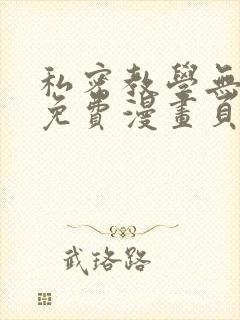 私密教學無
免費漫畫頁
武珞路